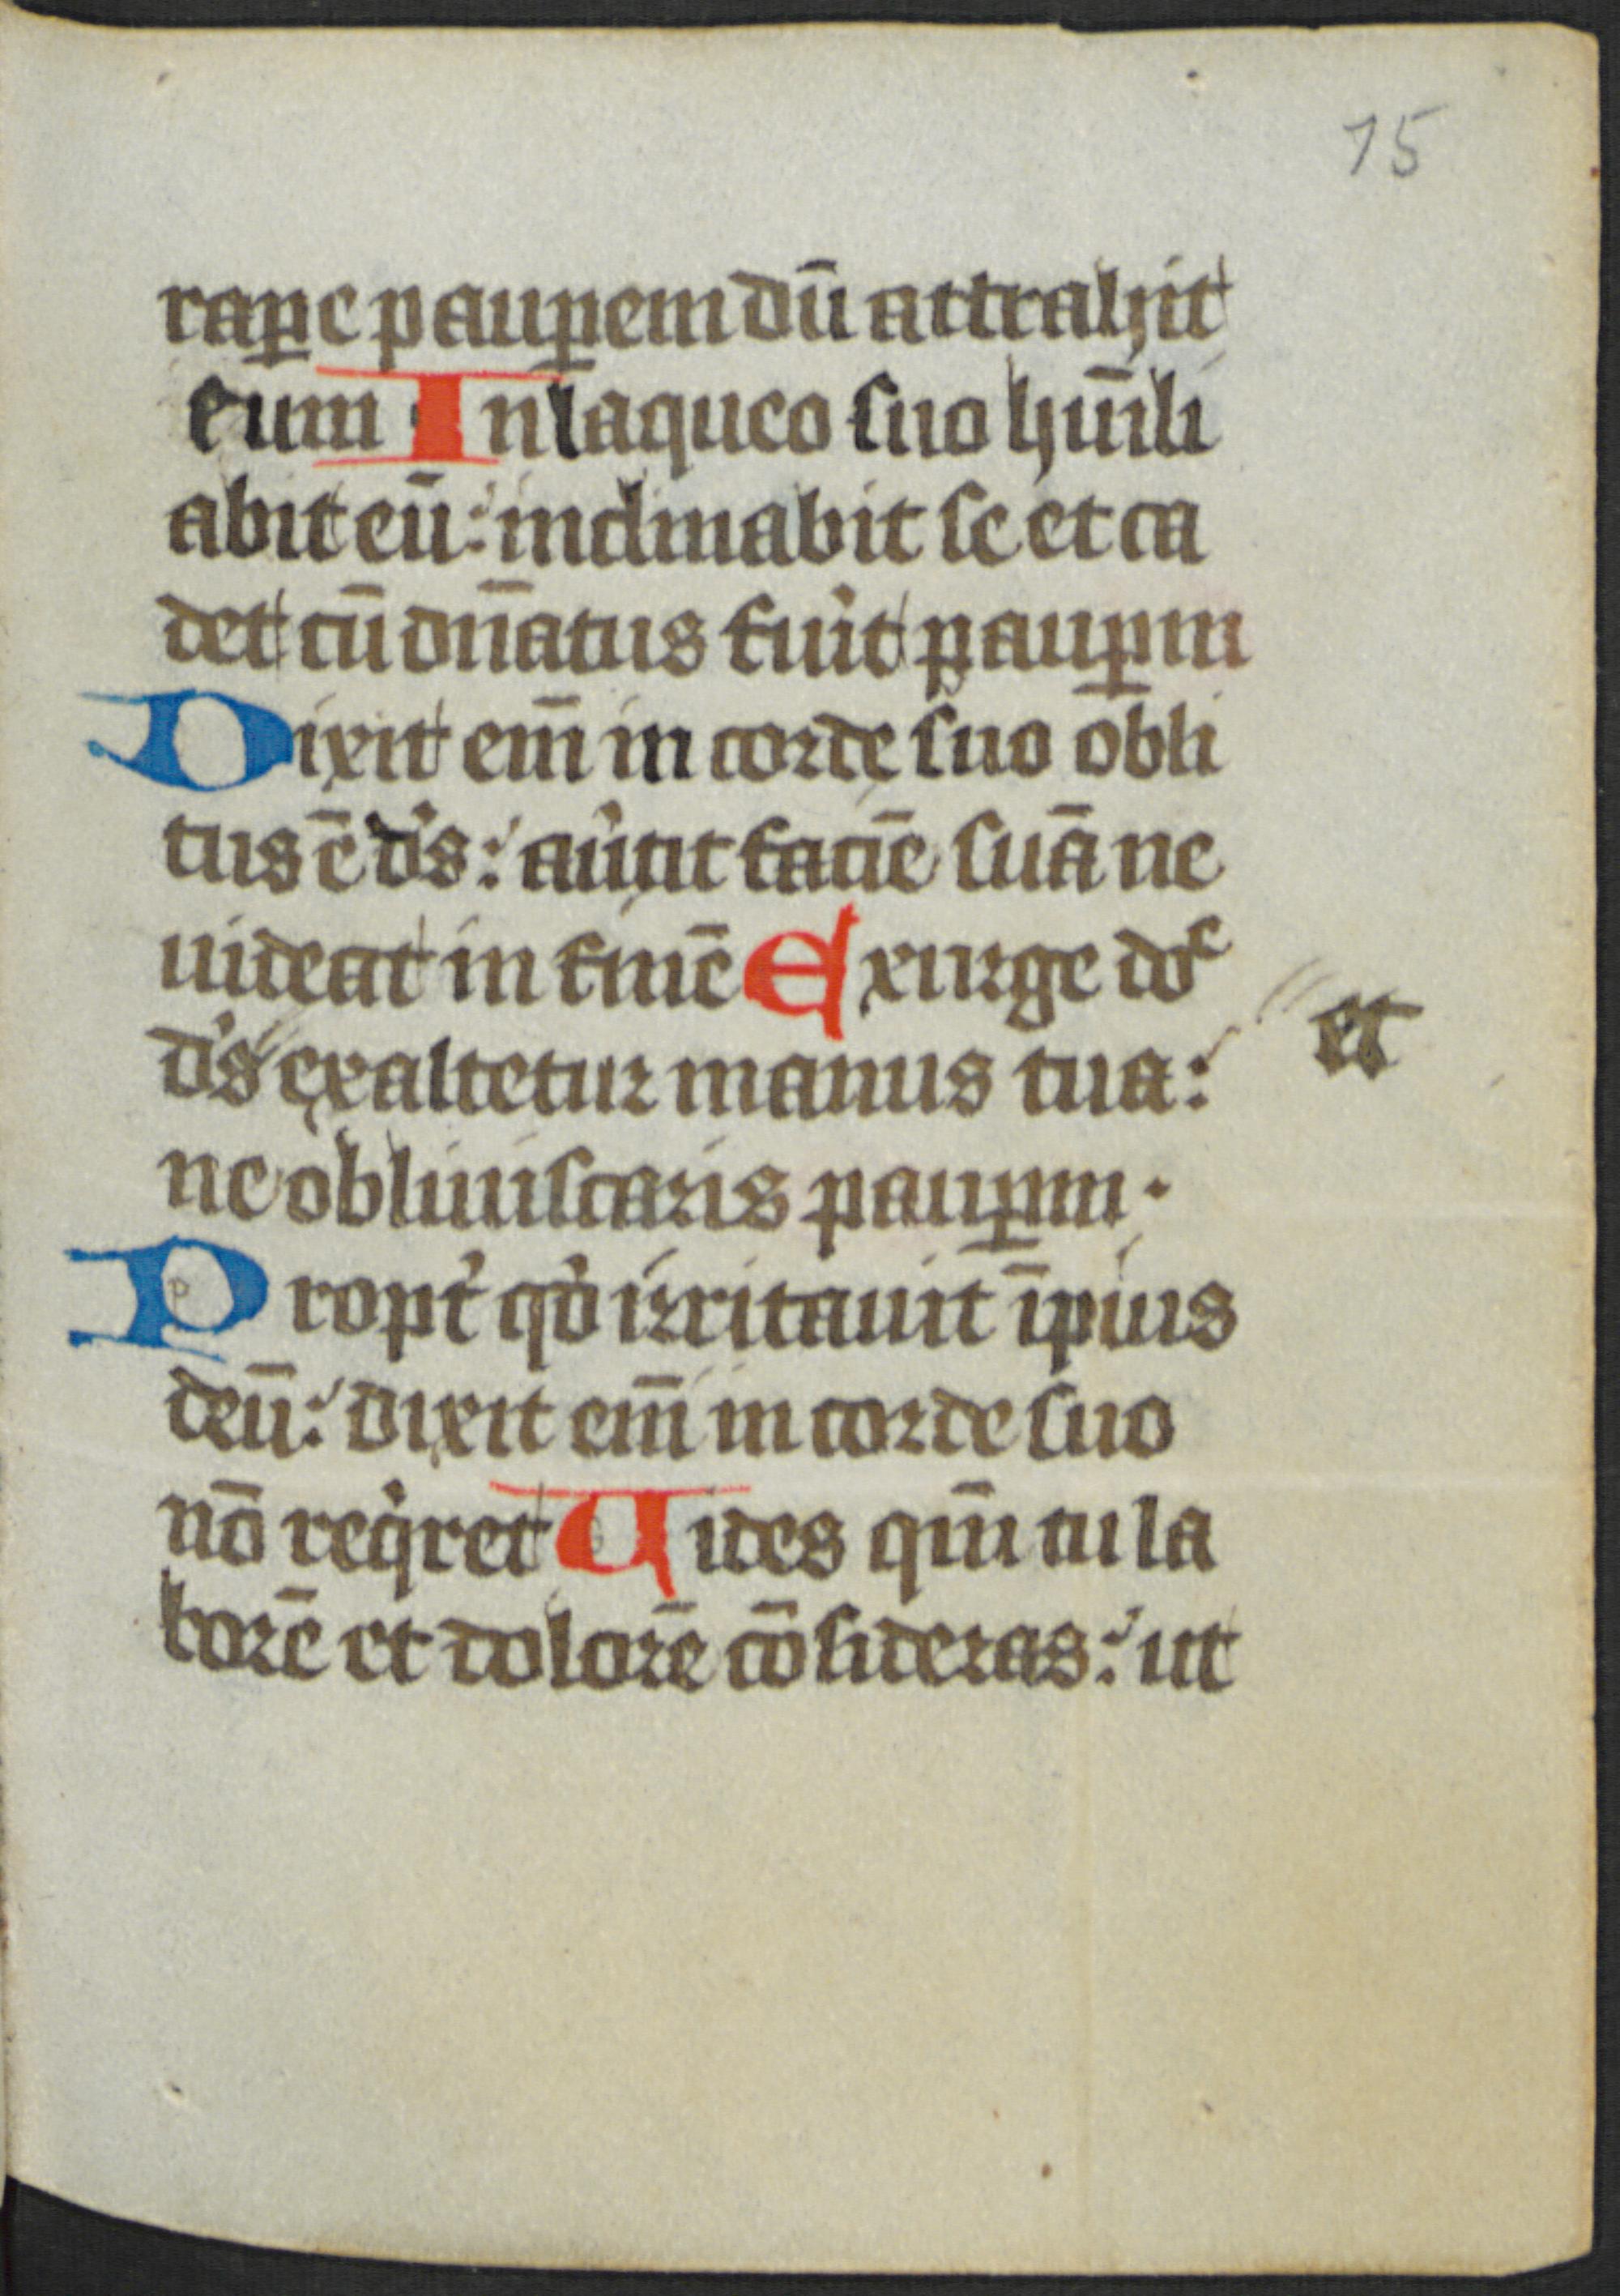 15
raꝑe pauꝑem dū attrahit
eum In laqueo suo hūili
abit eū: inclinabit se et ca
det cū dn̄atus fu'it pauꝑm
Dixit em̄ in corde suo obli
tus ē ds: au'tit faciē suā ne
uideat in finē Exurge do͛
ds exaltetur manus tua: et
ne obliuiscaris pauꝑum.
Propt' qd' irritauit īpius
deū: dixit em̄ in corde suo
nō reqͥret Uides qm̄ tu la
borē et dolorē cōsideras: ut